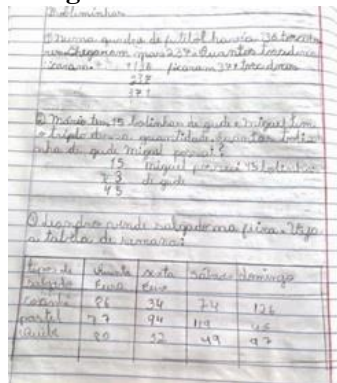 Probleminhas
① Numa quadra de futibol havia 136 torcedo
res. Chegaram mais 237. Quantos torcedores
ficaram? 136 ficaram 371 torcedores
237
371
② Mário tem 15 bolinhas de gude e Miguel tem
o triplo dessa quantidade. Quantas boli
nha de gude Miguel possui?
15 miguel possui 45 bolinhas
x 3 di gude
45
③ Leandro vende salgado na feira. Veja
a tabela da semana:
tipos de salgado quarta feira sexta feira sábado domingo
coxinha 86 34 74 126
pastel 77 94 119
quibe 80 52 49 97